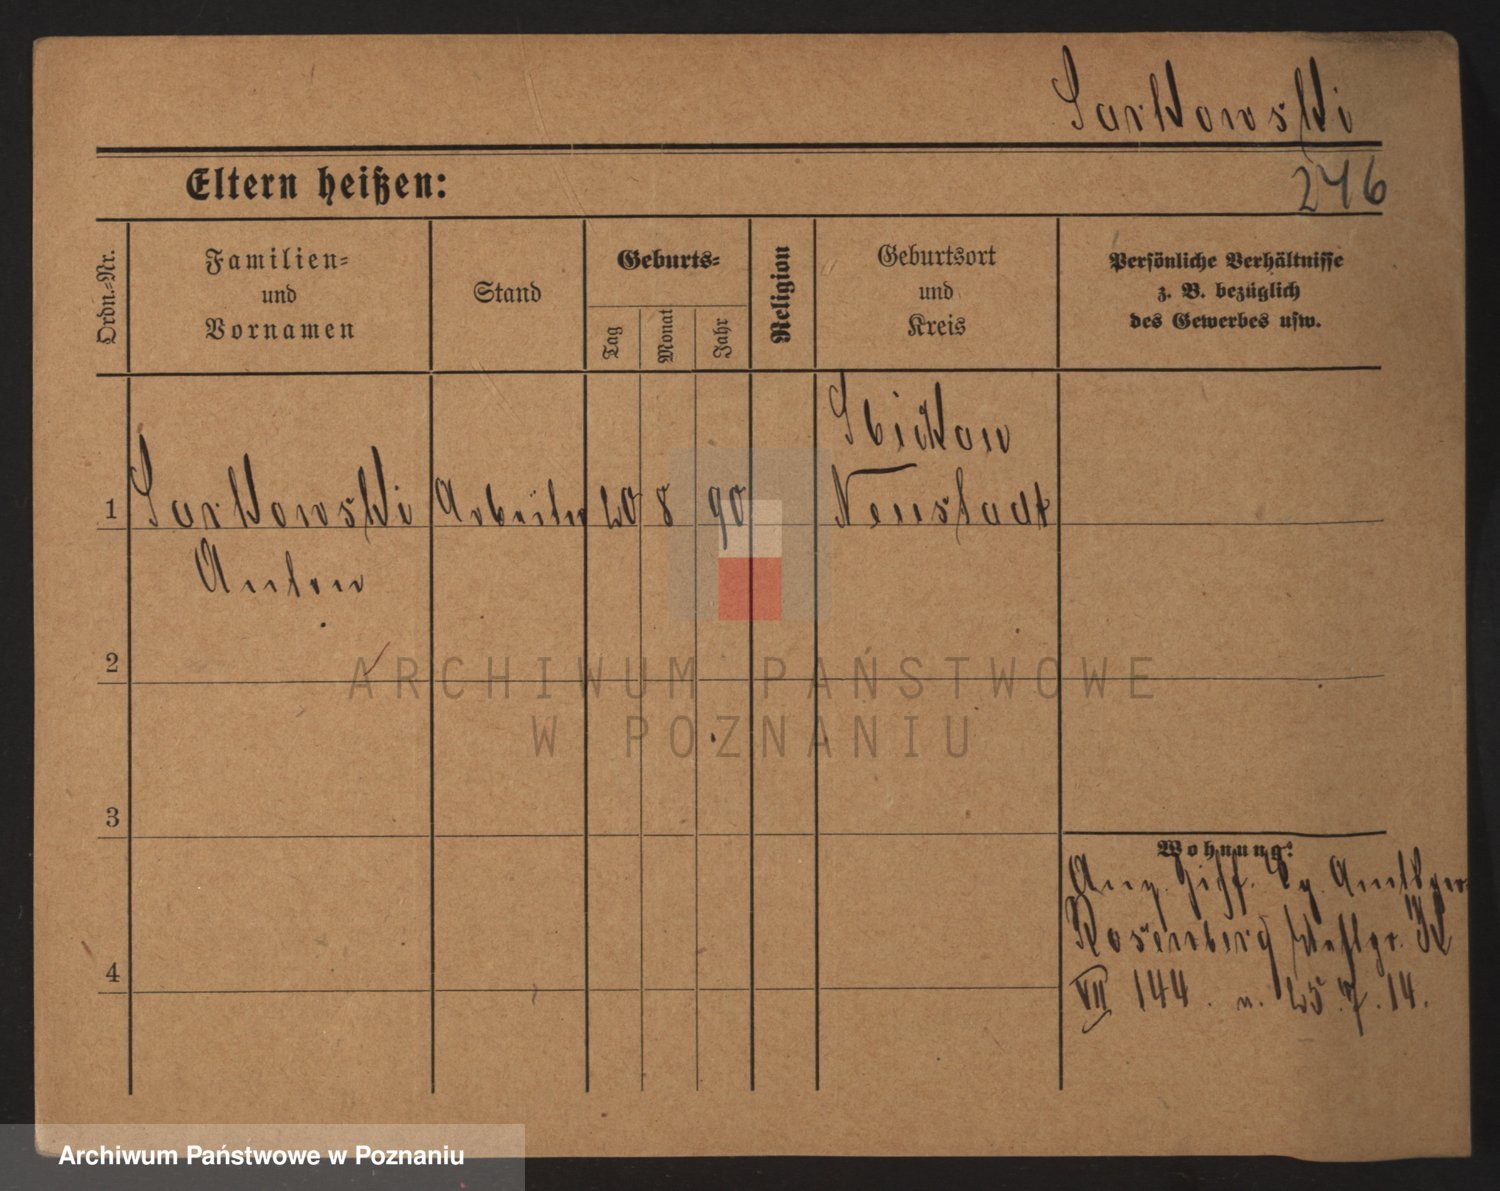 Sarkowski
Eltern heißen:
246
Ordn.-Nr.
Familien-
und
Vornamen
Stand
Geburts-
Tag
Monat
Jahr
Religion
Geburtsort
und
Kreis
Persönliche Verhältnisse
z. B. bezüglich
des Gewerbes usw.
1
Sarkowski
Anton
Arbeiter
20
8
90
Neustadt
2
3
4
Wohnung:
Rosenberg
VII 144. v. 25.7.14.
ARCHIWUM PAŃSTWOWE
W POZNANIU
Archiwum Państwowe w Poznaniu